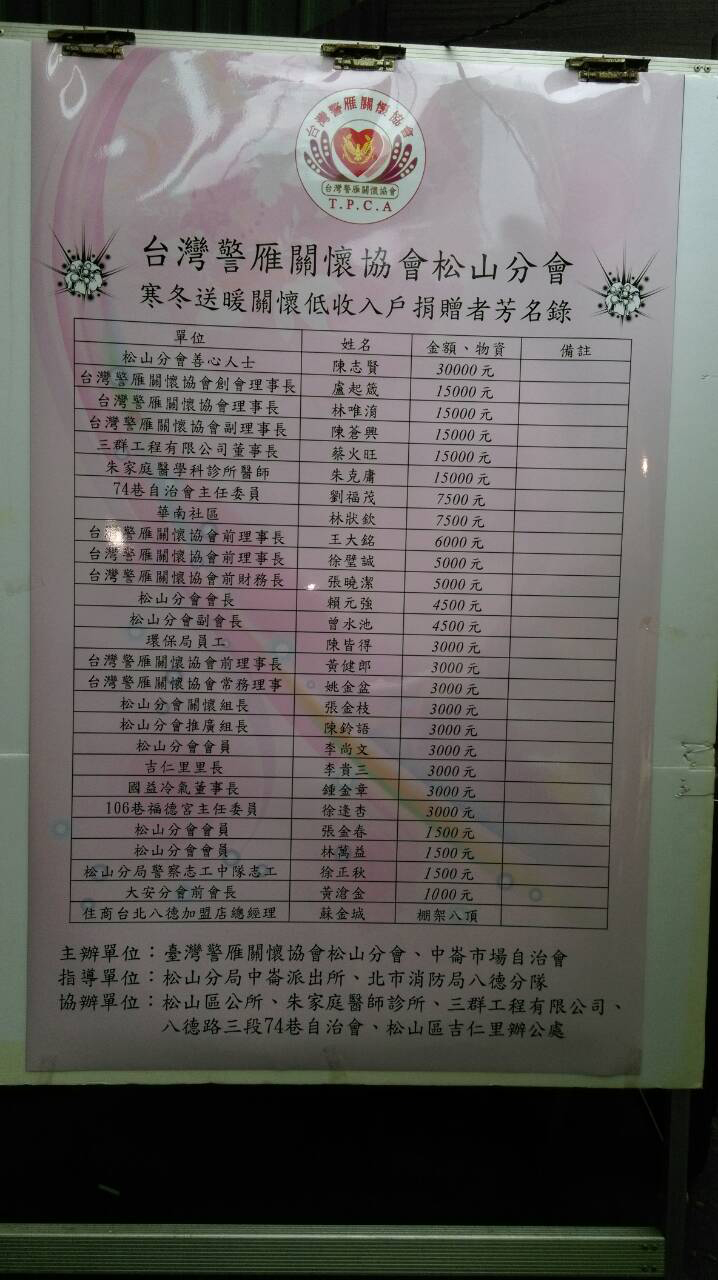 台灣警雁關懷協會
台灣警雁關懷協會
T.P.C.A
台灣警雁關懷協會松山分會
寒冬送暖關懷低收入戶捐贈者芳名錄
單位 姓名 金額、物資 備註
松山分會善心人士 陳志賢 30000元
台灣警雁關懷協會創會理事長 盧起箴 15000元
台灣警雁關懷協會理事長 林唯淯 15000元
台灣警雁關懷協會副理事長 陳蒼興 15000元
三群工程有限公司董事長 蔡火旺 15000元
朱家庭醫學科診所醫師 朱克庸 15000元
74巷自治會主任委員 劉福茂 7500元
華南社區 林狀欽 7500元
台灣警雁關懷協會前理事長 王大銘 6000元
台灣警雁關懷協會前理事長 徐璧誠 5000元
台灣警雁關懷協會前財務長 張曉潔 5000元
松山分會會長 賴元強 4500元
松山分會副會長 曾水池 4500元
環保局員工 陳皆得 3000元
台灣警雁關懷協會前理事長 黃健郎 3000元
台灣警雁關懷協會常務理事 姚金盆 3000元
松山分會關懷組長 張金枝 3000元
松山分會推廣組長 陳鈴語 3000元
松山分會會員 李尚文 3000元
吉仁里里長 李貴三 3000元
國益冷氣董事長 鍾金章 3000元
106巷福德宮主任委員 徐逢杏 3000元
松山分會會員 張金春 1500元
松山分會會員 林萬益 1500元
松山分局警察志工中隊志工 徐正秋 1500元
大安分會前會長 黃滄金 1000元
住商台北八德加盟店總經理 蘇金城 棚架八頂
主辦單位：臺灣警雁關懷協會松山分會、中崙市場自治會
指導單位：松山分局中崙派出所、北市消防局八德分隊
協辦單位：松山區公所、朱家庭醫師診所、三群工程有限公司、
八德路三段74巷自治會、松山區吉仁里辦公處